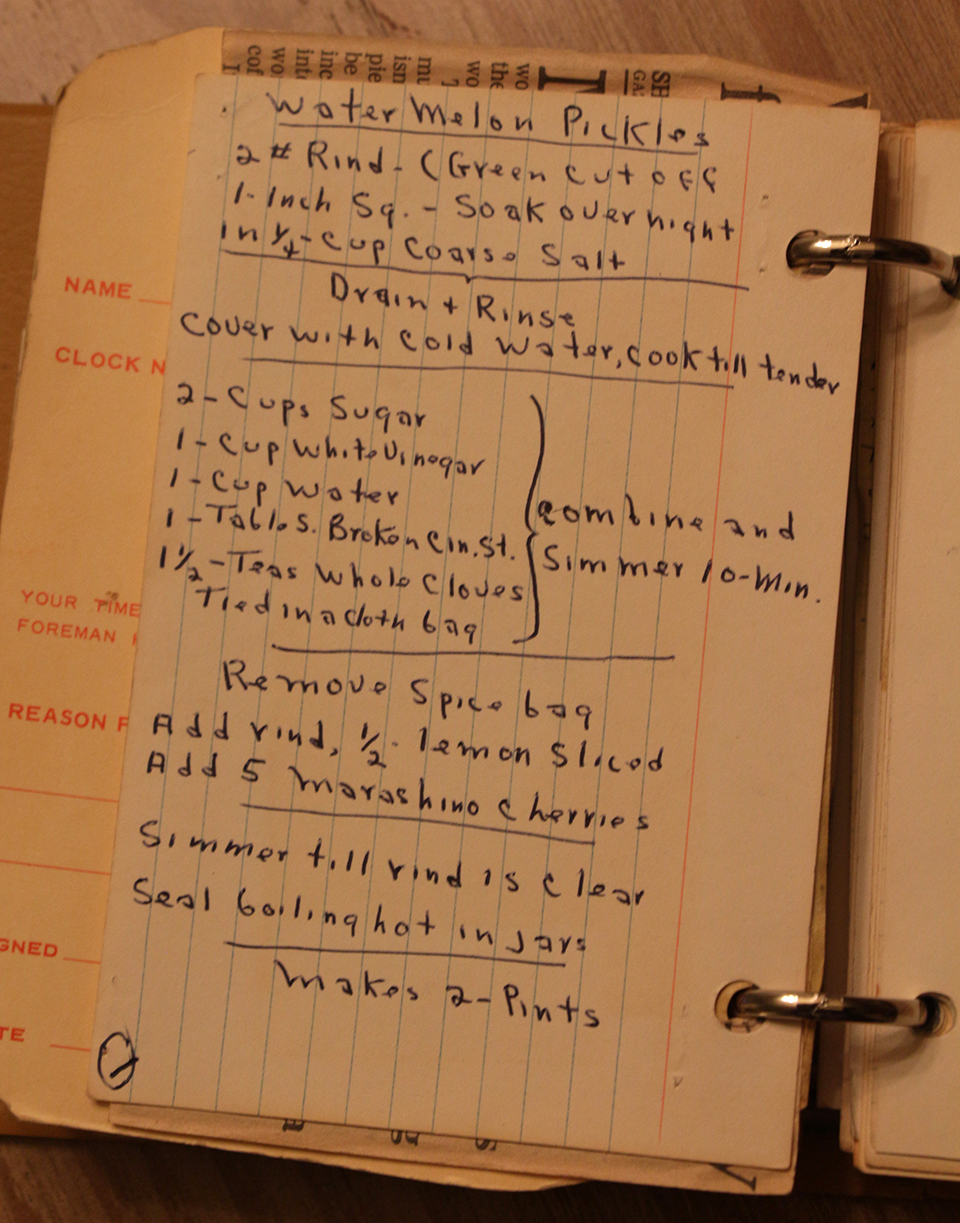 Water Melon Pickles
2# Rind - (Green cut off
1-Inch Sq. - Soak over night
in 1/4-Cup Coarse Salt
Drain + Rinse
Cover with Cold Water, cook till tender
2-Cups Sugar
1-Cup White Vinegar
1-Cup Water
1-Tables. Broken Cin. St.
1 1/2-Teas Whole Cloves
Tied in a cloth bag
Combine and
Simmer 10-Min.
Remove Spice bag
Add rind, 1/2-lemon Sliced
Add 5 Marashino Cherries
Simmer till rind is clear
Seal boiling hot in Jars
Makes 2-Pints
1
NAME
CLOCK N
YOUR TIME
FOREMAN
REASON F
GNED
TE
SH
GA
wo
the
wo
mu
isn
pie
be
inc
int
wo
cof